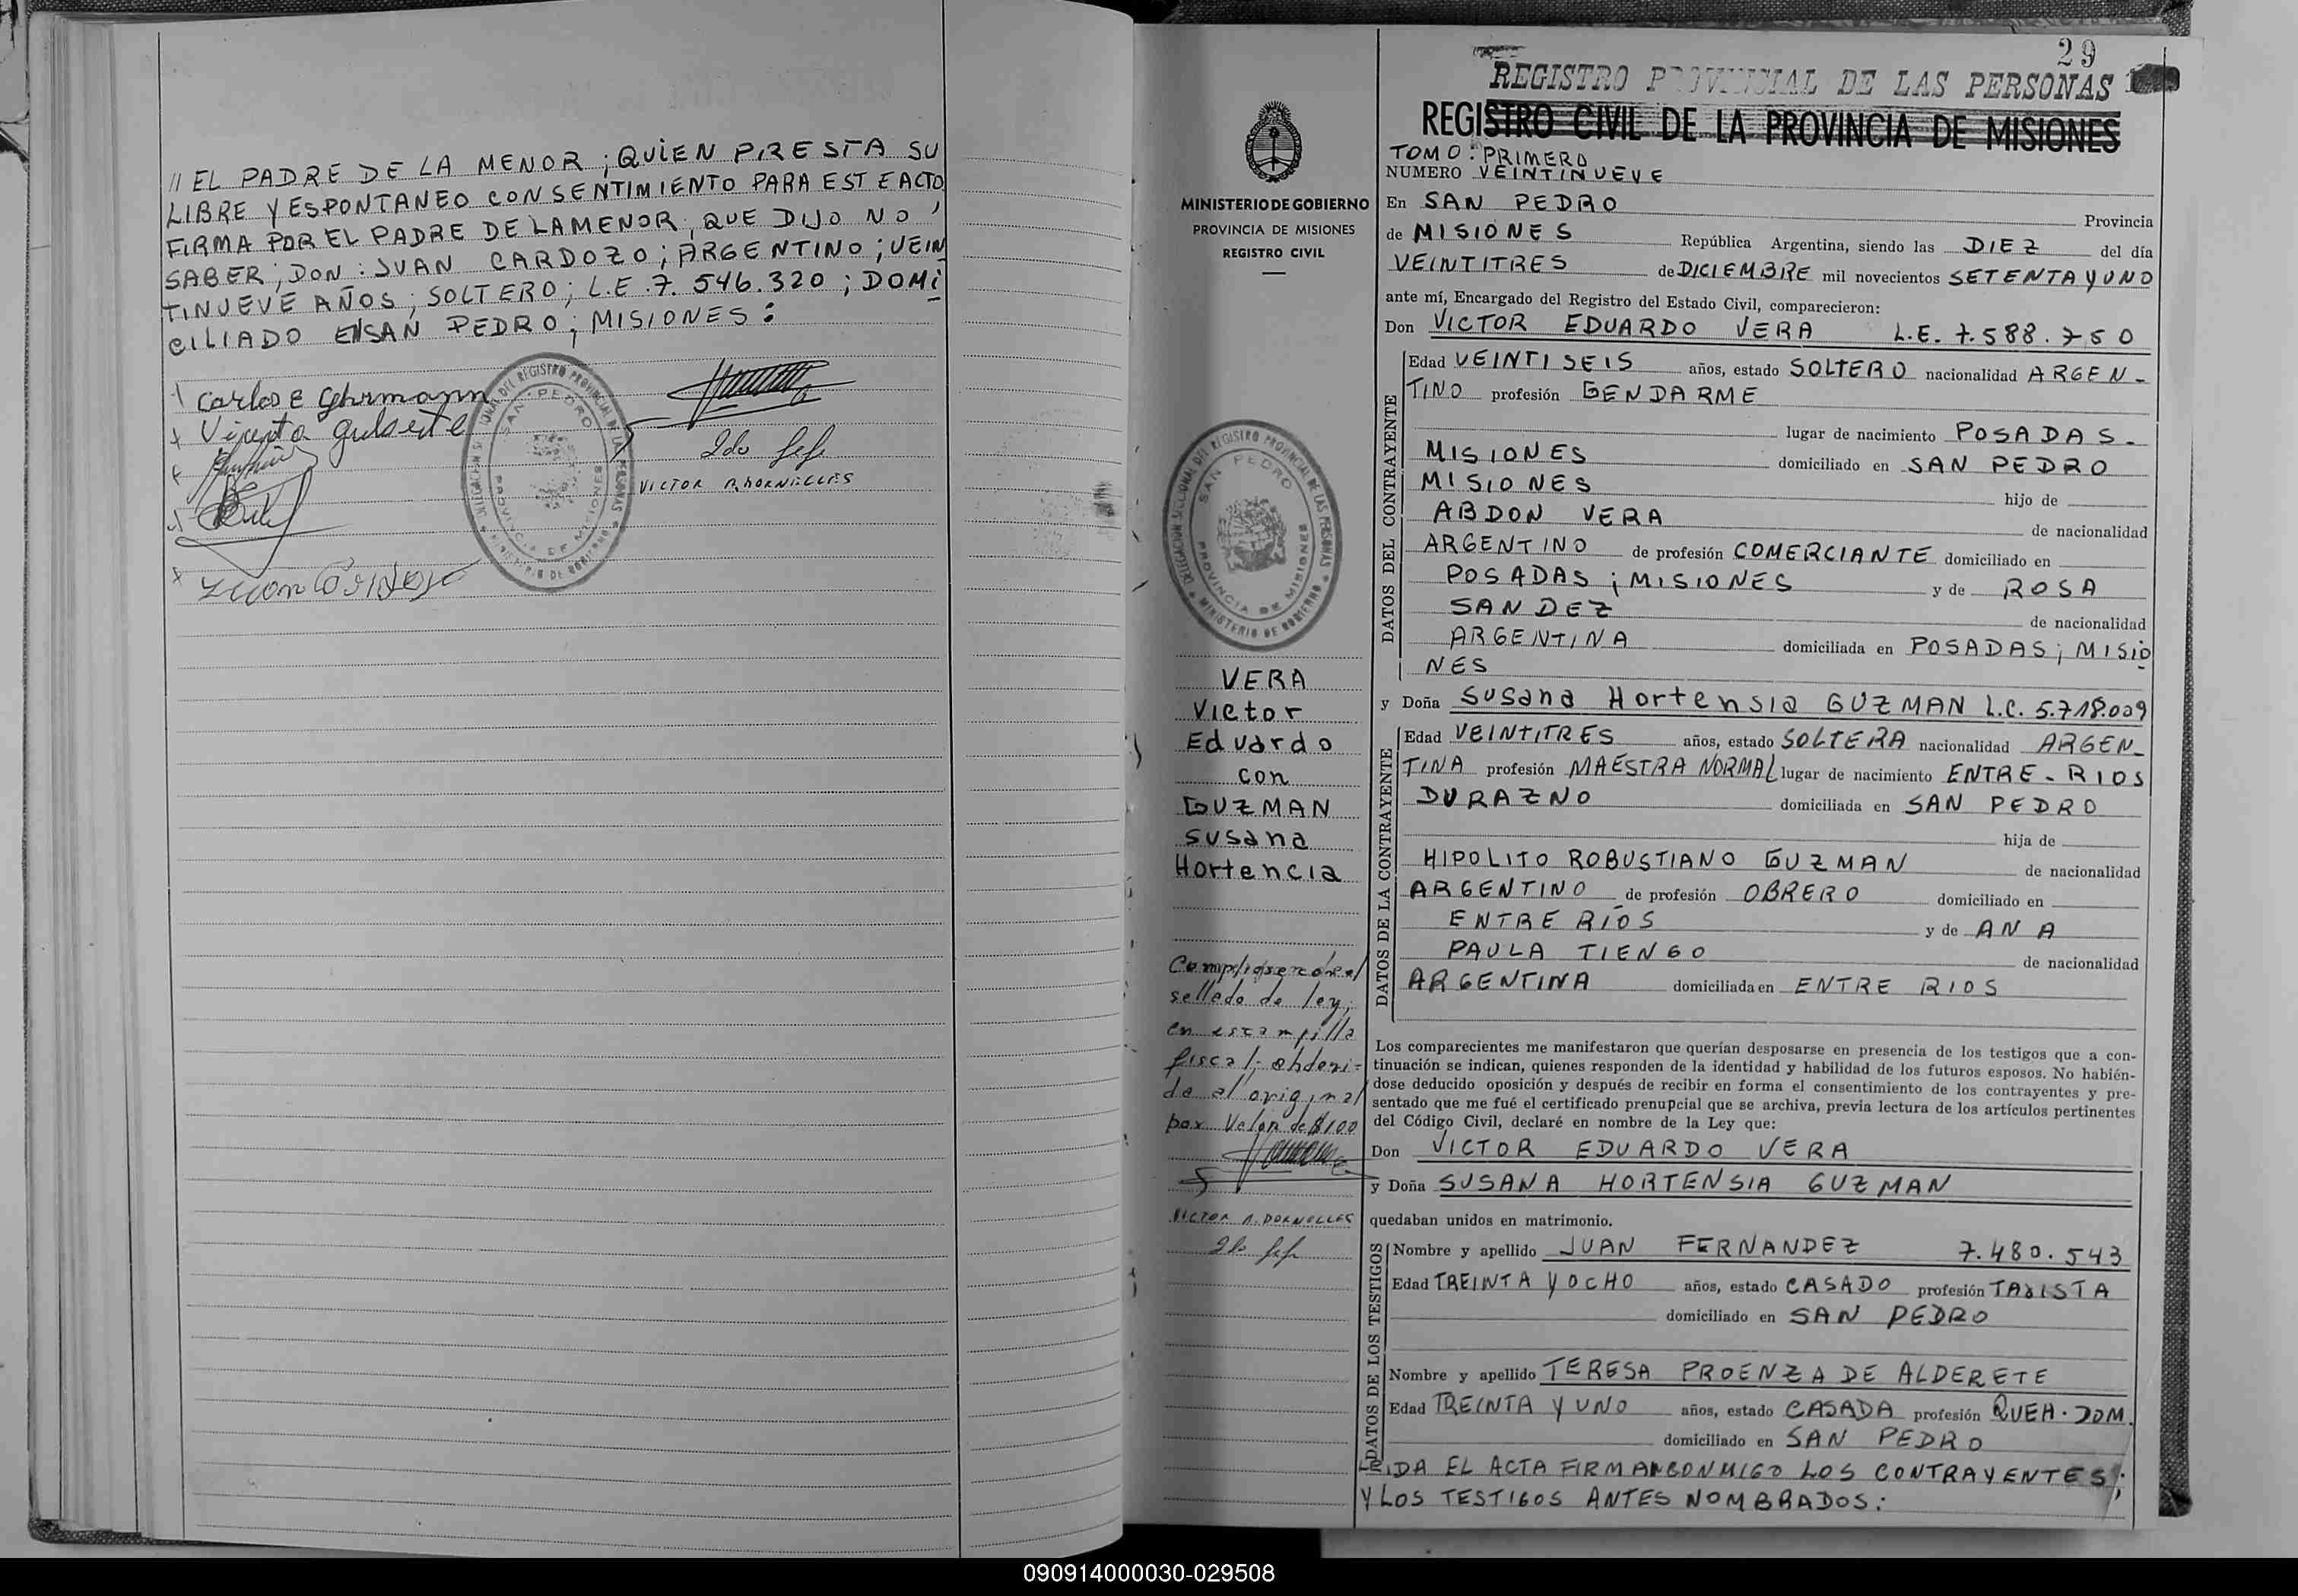 // EL PADRE DE LA MENOR; QUIEN PRESTA SU
LIBRE Y ESPONTANEO CONSENTIMIENTO PARA ESTE ACTO
FIRMA POR EL PADRE DE LA MENOR, QUE DIJO NO
SABER; DON: JUAN CARDOZO; ARGENTINO; VEIN
TINUEVE AÑOS; SOLTERO; L.E. 7.546.320; DOMI
CILIADO EN SAN PEDRO; MISIONES:
Carlos E Gehrmann
2do Jefe
VICTOR A. DORNELLES
Juan Cardozo
DELEGACION SECCIONAL DEL REGISTRO PROVINCIAL DE LAS PERSONAS
SAN PEDRO
PROVINCIA DE MISIONES
MINISTERIO DE GOBIERNO
29
REGISTRO PROVINCIAL DE LAS PERSONAS
REGISTRO CIVIL DE LA PROVINCIA DE MISIONES
MINISTERIO DE GOBIERNO
PROVINCIA DE MISIONES
REGISTRO CIVIL
DELEGACION SECCIONAL DEL REGISTRO PROVINCIAL DE LAS PERSONAS
SAN PEDRO
PROVINCIA DE MISIONES
MINISTERIO DE GOBIERNO
VERA
Victor
Eduardo
con
GUZMAN
Susana
Hortencia
sellado de ley;
en estampilla
fiscal; adheri=
da al original
por Valor de $100
VICTOR A. DORNELLES
2do Jefe
TOMO: PRIMERO
NUMERO VEINTINUEVE
En SAN PEDRO Provincia
de MISIONES República Argentina, siendo las DIEZ del día
VEINTITRES de DICIEMBRE mil novecientos SETENTA Y UNO
ante mí, Encargado del Registro del Estado Civil, comparecieron:
Don VICTOR EDUARDO VERA L.E. 7.588.750
DATOS DEL CONTRAYENTE
Edad VEINTISEIS años, estado SOLTERO nacionalidad ARGEN-
TINO profesión GENDARME
lugar de nacimiento POSADAS-
MISIONES domiciliado en SAN PEDRO
MISIONES hijo de
ABDON VERA de nacionalidad
ARGENTINO de profesión COMERCIANTE domiciliado en
POSADAS; MISIONES y de ROSA
SANDEZ de nacionalidad
ARGENTINA domiciliada en POSADAS; MISIO
NES
y Doña Susana Hortensia GUZMAN L.C. 5.718.009
DATOS DE LA CONTRAYENTE
Edad VEINTITRES años, estado SOLTERA nacionalidad ARGEN-
TINA profesión MAESTRA NORMAL lugar de nacimiento ENTRE-RIOS
DURAZNO domiciliada en SAN PEDRO
hija de
HIPOLITO ROBUSTIANO GUZMAN de nacionalidad
ARGENTINO de profesión OBRERO domiciliado en
ENTRE RIOS y de ANA
PAULA TIENGO de nacionalidad
ARGENTINA domiciliada en ENTRE RIOS
Los comparecientes me manifestaron que querían desposarse en presencia de los testigos que a con-
tinuación se indican, quienes responden de la identidad y habilidad de los futuros esposos. No habién-
dose deducido oposición y después de recibir en forma el consentimiento de los contrayentes y pre-
sentado que me fué el certificado prenupcial que se archiva, previa lectura de los artículos pertinentes
del Código Civil, declaré en nombre de la Ley que:
Don VICTOR EDUARDO VERA
y Doña SUSANA HORTENSIA GUZMAN
quedaban unidos en matrimonio.
DATOS DE LOS TESTIGOS
Nombre y apellido JUAN FERNANDEZ 7.480.543
Edad TREINTA Y OCHO años, estado CASADO profesión TAXISTA
domiciliado en SAN PEDRO
Nombre y apellido TERESA PROENZA DE ALDERETE
Edad TREINTA Y UNO años, estado CASADA profesión QUEH. DOM.
domiciliado en SAN PEDRO
LEIDA EL ACTA FIRMAN CONMIGO LOS CONTRAYENTES;
Y LOS TESTIGOS ANTES NOMBRADOS:
090914000030-029508